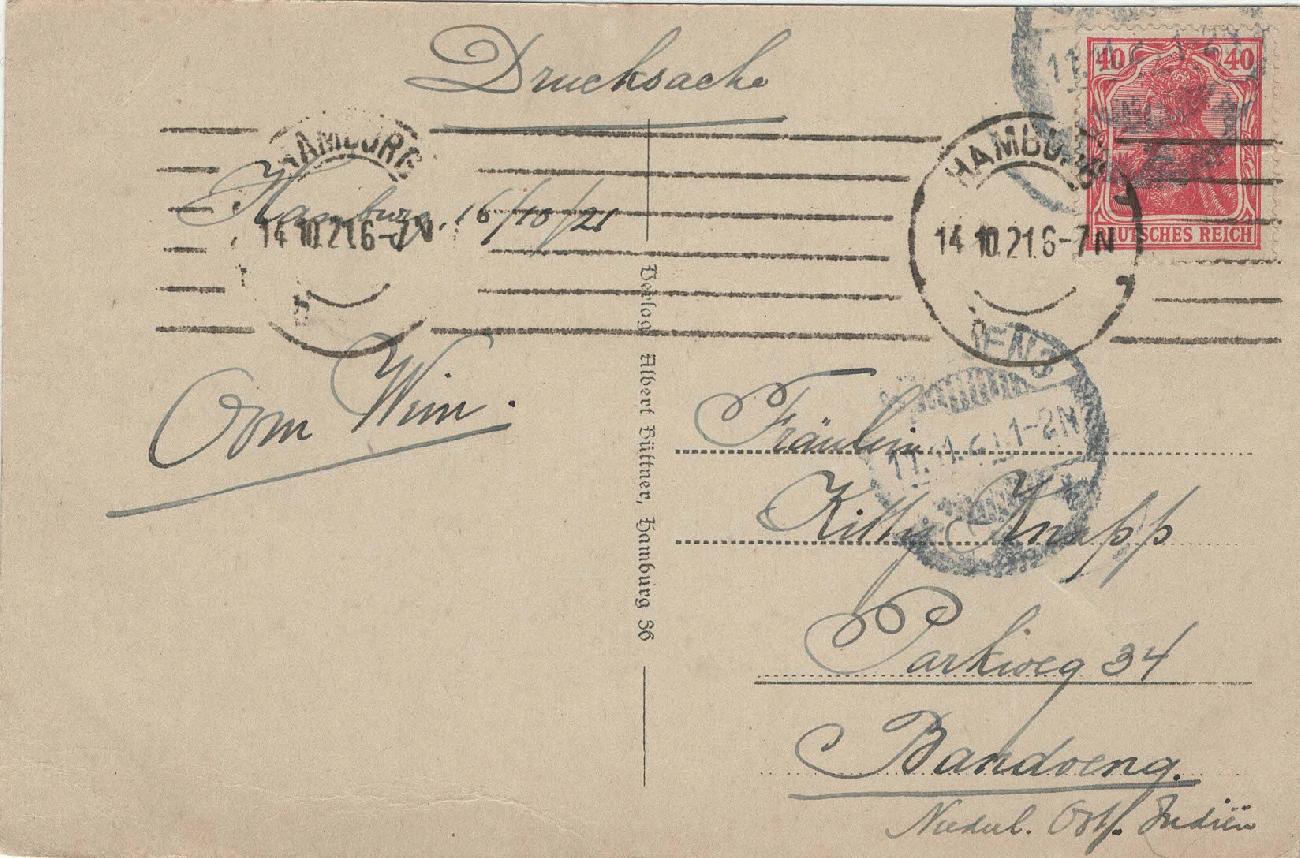 Drucksache
40 40
DEUTSCHES REICH
HAMBURG
14.10.21.6-7N
HAMBURG
14.10.21.6-7N
1
Hamburg. 16/10/21
Oom Wim.
Verlag Albert Büttner, Hamburg 36
11.11.21.1-2N
Fräulein
Kitty Knapp
Parkweg 34
Bandoeng.
Niederl. Ost. Indiën